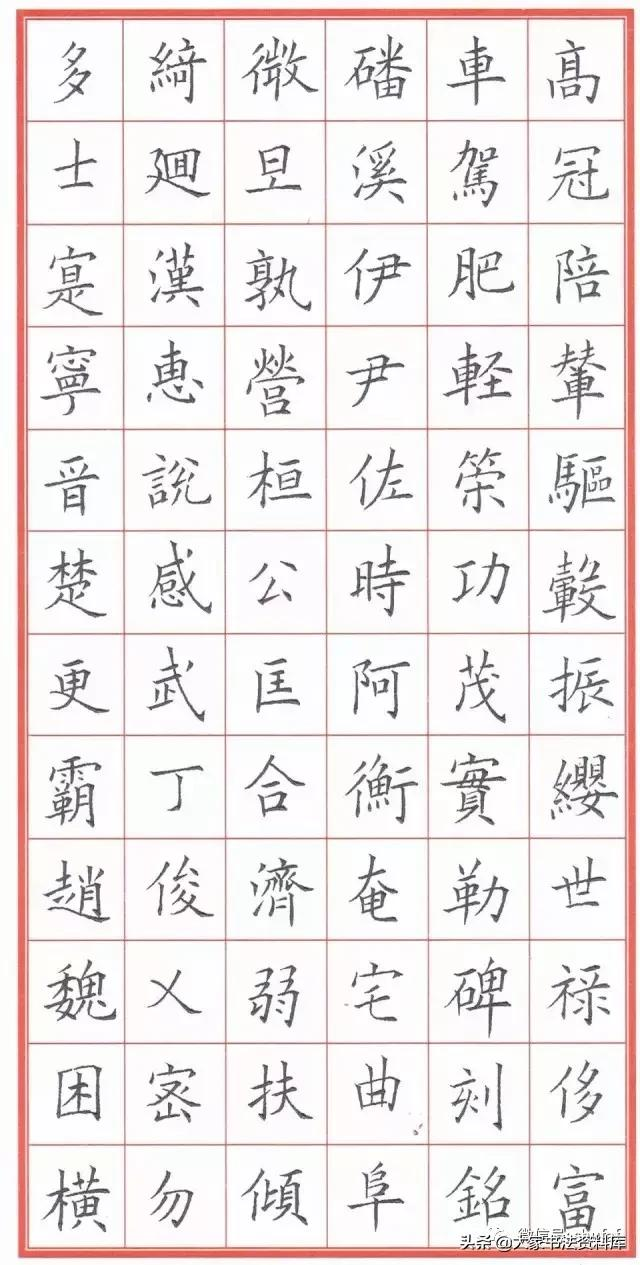 高冠陪輦驅轂振纓世禄侈富
車駕肥軽策功茂實勒碑刻銘
磻溪伊尹佐時阿衡奄宅曲阜
微旦孰營桓公匡合濟弱扶傾
綺迴漢惠說感武丁俊乂密勿
多士寔寧晉楚更霸趙魏困橫
头条@大家书法资料库